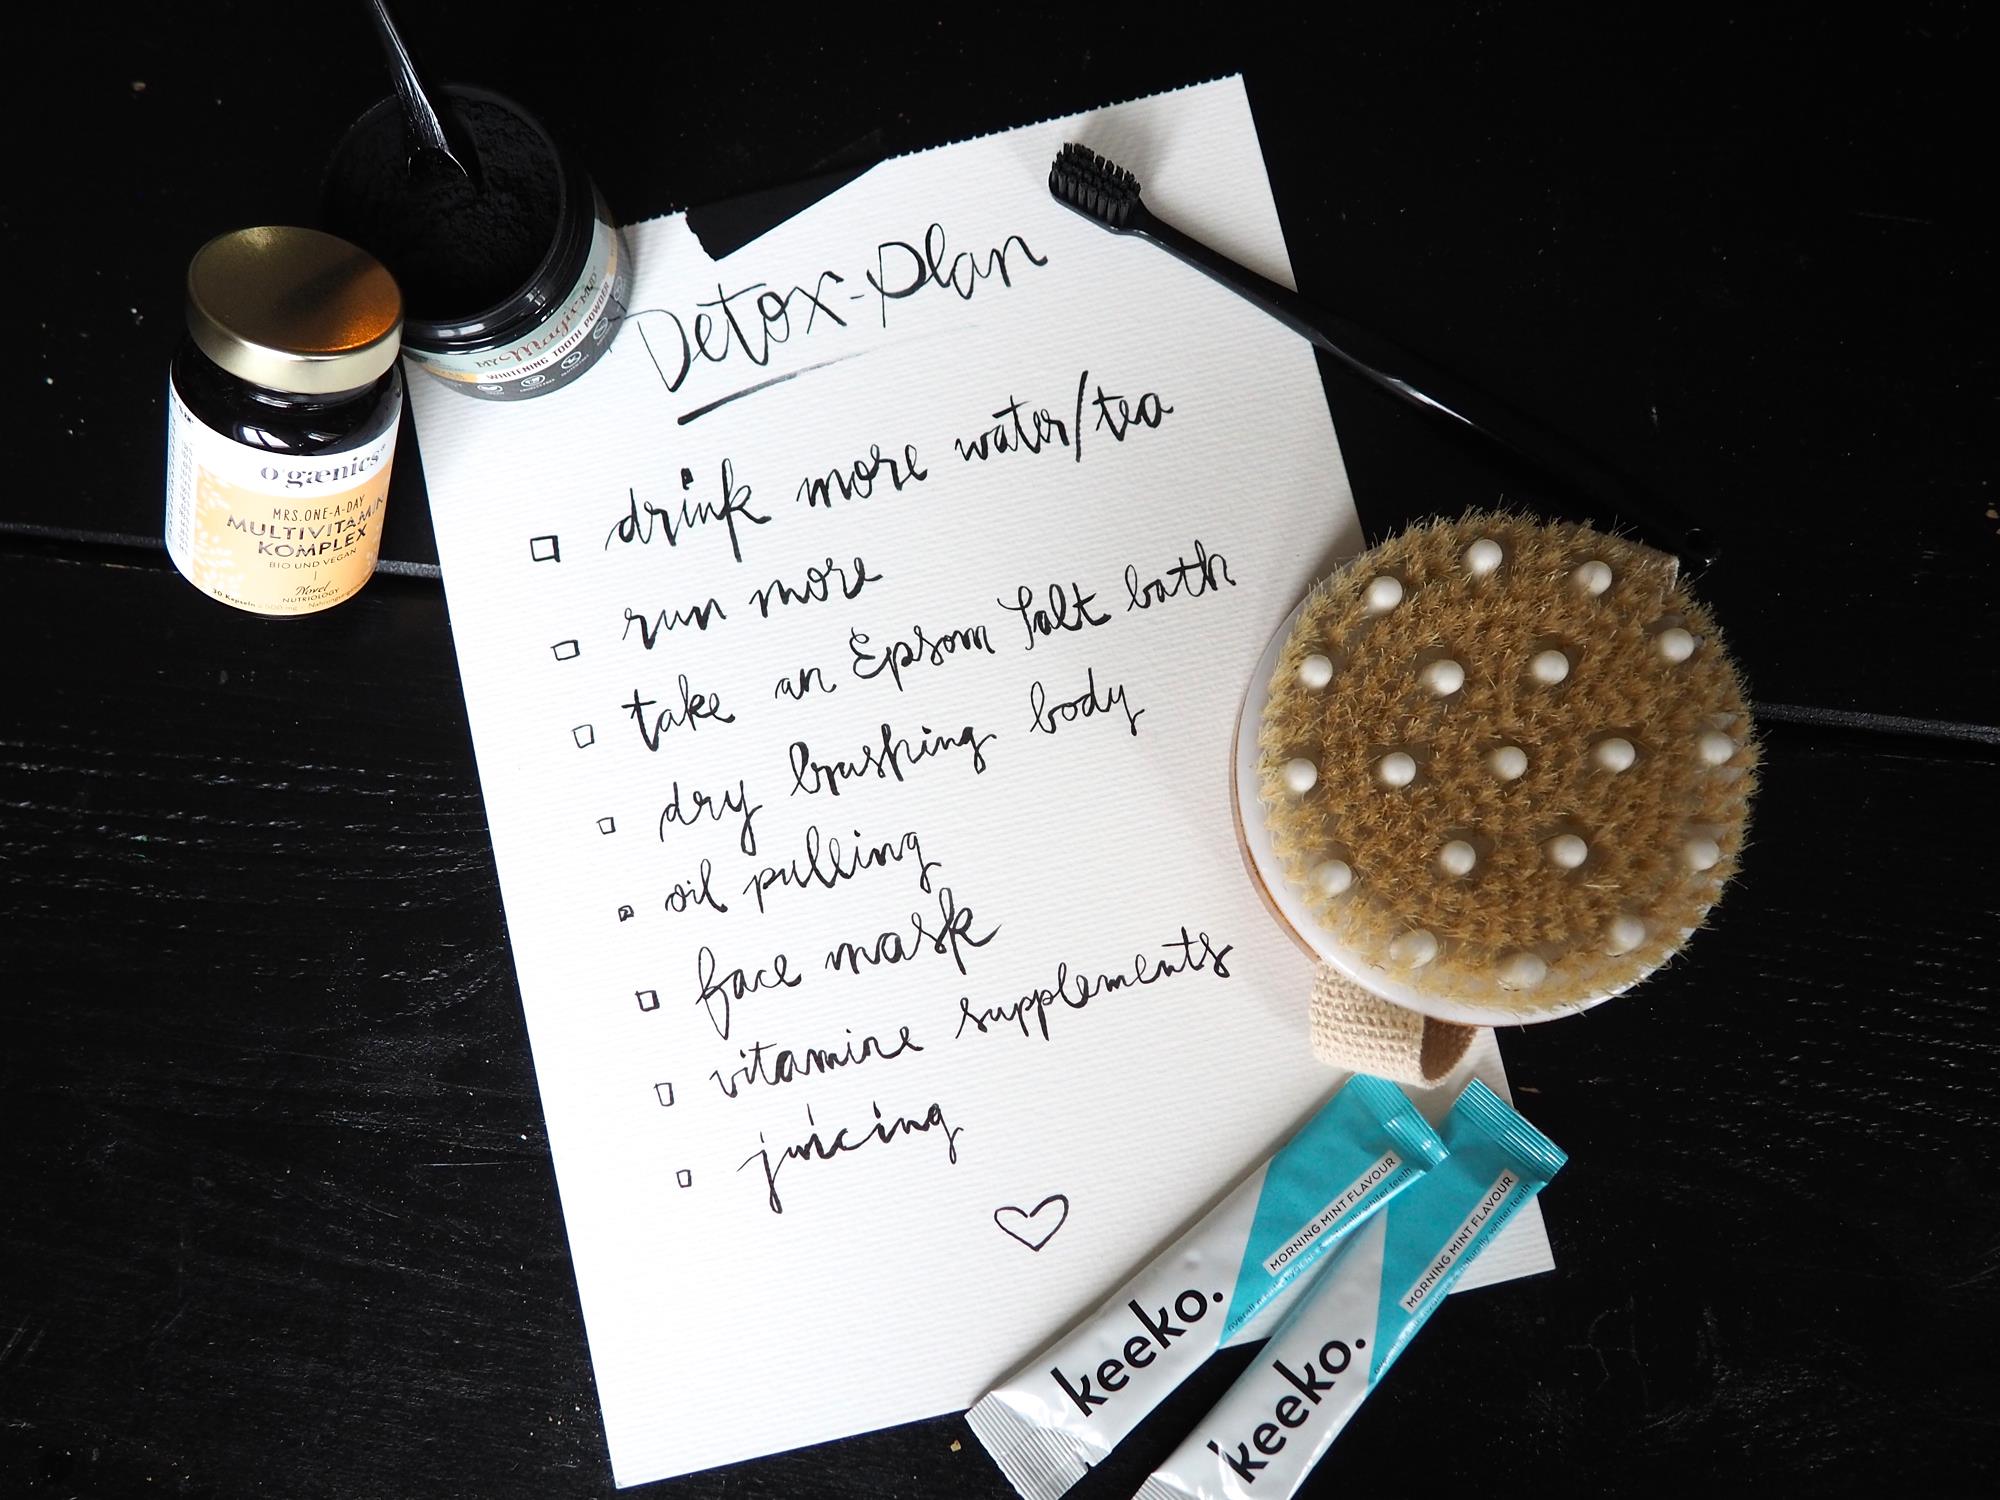 Detox-Plan
drink more water/tea
run more
take an Epsom Salt bath
dry brushing body
oil pulling
face mask
vitamine supplements
juicing
MY Magic MUD
WHITENING TOOTH POWDER
o'gænics
MRS. ONE-A-DAY
MULTIVITAMIN
KOMPLEX
BIO UND VEGAN
Novel
NUTRIOLOGY
30 Kapseln
keeko.
MORNING MINT FLAVOUR
keeko.
MORNING MINT FLAVOUR